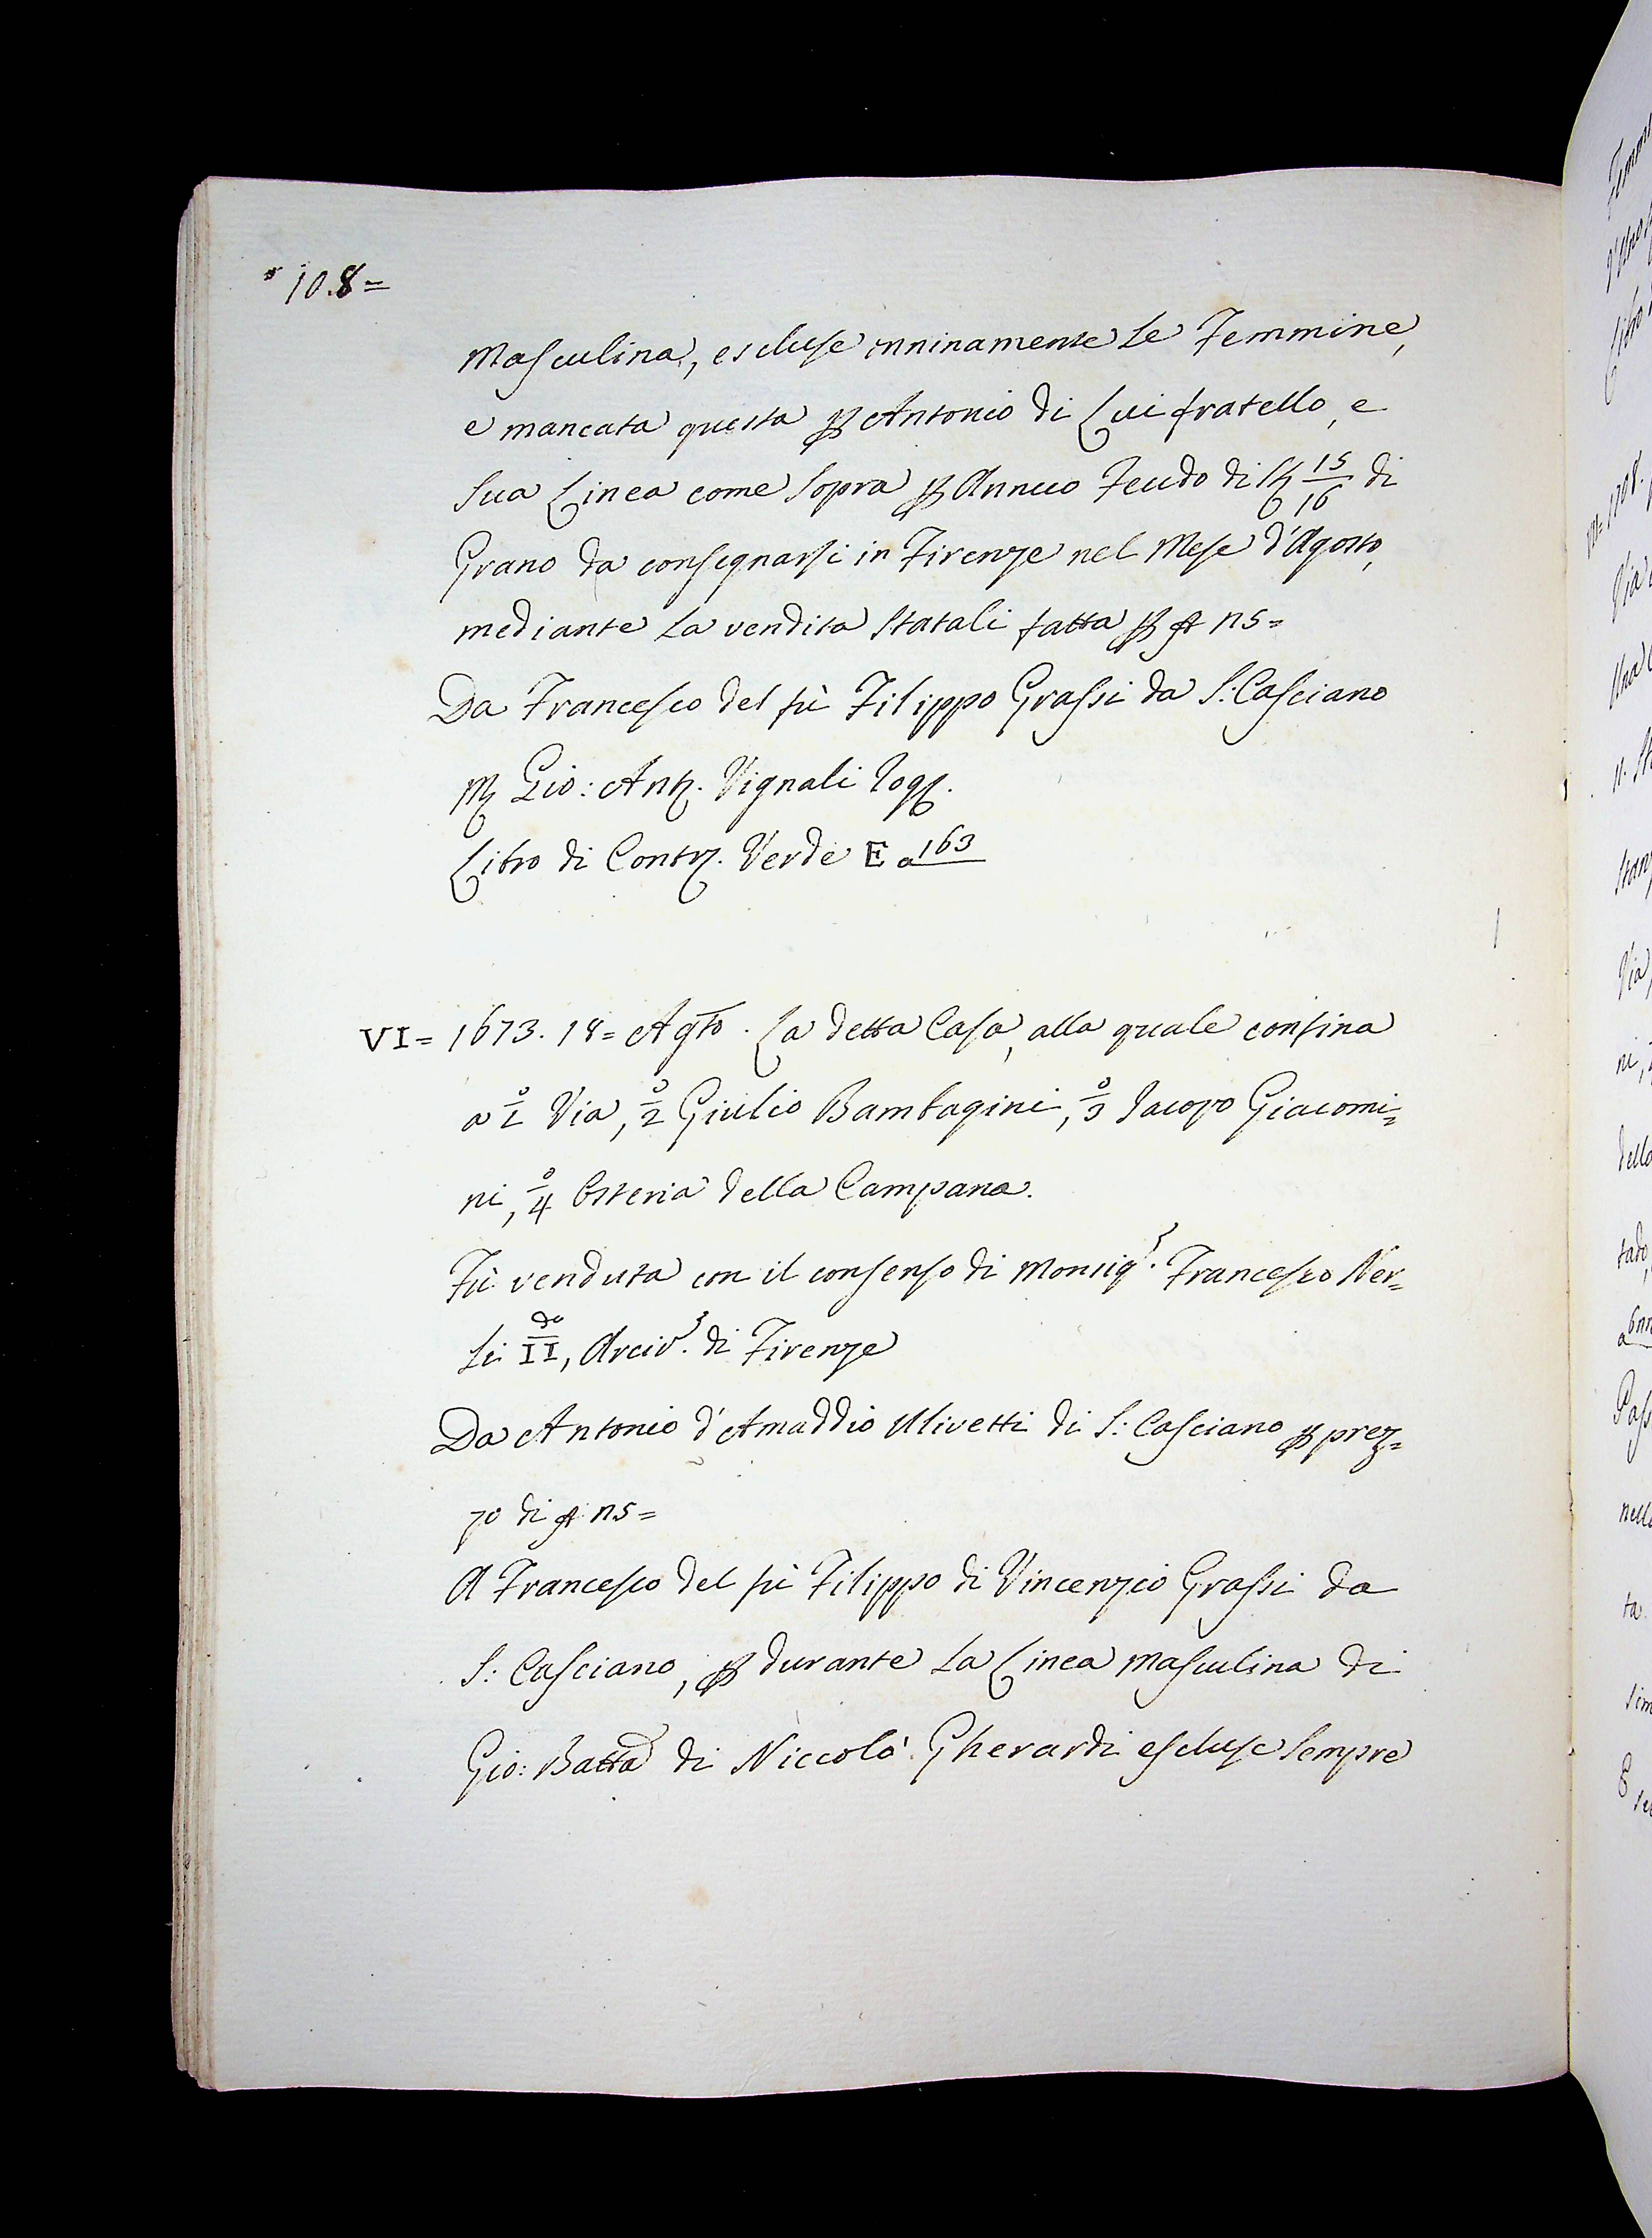 108=
Masculina, escluse onninamente le Femmine,
e mancata questa per Antonio di Lui fratello, e
sua Linea come sopra per Annuo Feudo di St 15/16 di
Grano da consegnarsi in Firenze nel Mese d'Agosto,
mediante la vendita statali fatta per 115=
Da Francesco del fù Filippo Grassi da S: Casciano
Gio: Ant. Vignali Rog.
Libro di Contr. Verde E a 163
VI= 1673. 18= Agto. La detta Casa, alla quale confina
a 1° Via, 2° Giulio Bambagini, 3° Jacopo Giacomi=
ni, 4° Osteria della Campana.
Fù venduta con il consenso di Monsigr. Francesco Ner=
li IIdo, Arcivo. di Firenze
Da Antonio d'Amaddio Ulivetti di S: Casciano per prez=
zo di 115=
A Francesco del fù Filippo di Vincenzio Grassi da
S: Casciano, per durante la Linea Masculina di
Gio: Batta di Niccolò Gherardi escluse sempre